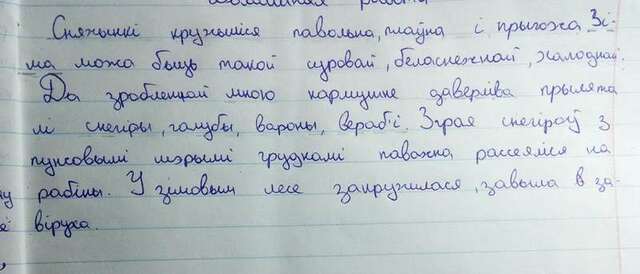 Сняжынкі кружыліся павольна, плаўна і прыгожа. Зі-
ма можа быць такой суровай, беласнежнай, халоднай.
Да зробленной мною кармушке даверліва прылята
лі снегіры, галубы, вароны, вераб'і. Зграя снегіроў з
пунсовымі шэрымі грудкамі паважна рассеяліся на
рабіны. У зімовым лесе закружилася, завыла в за-
віруха.